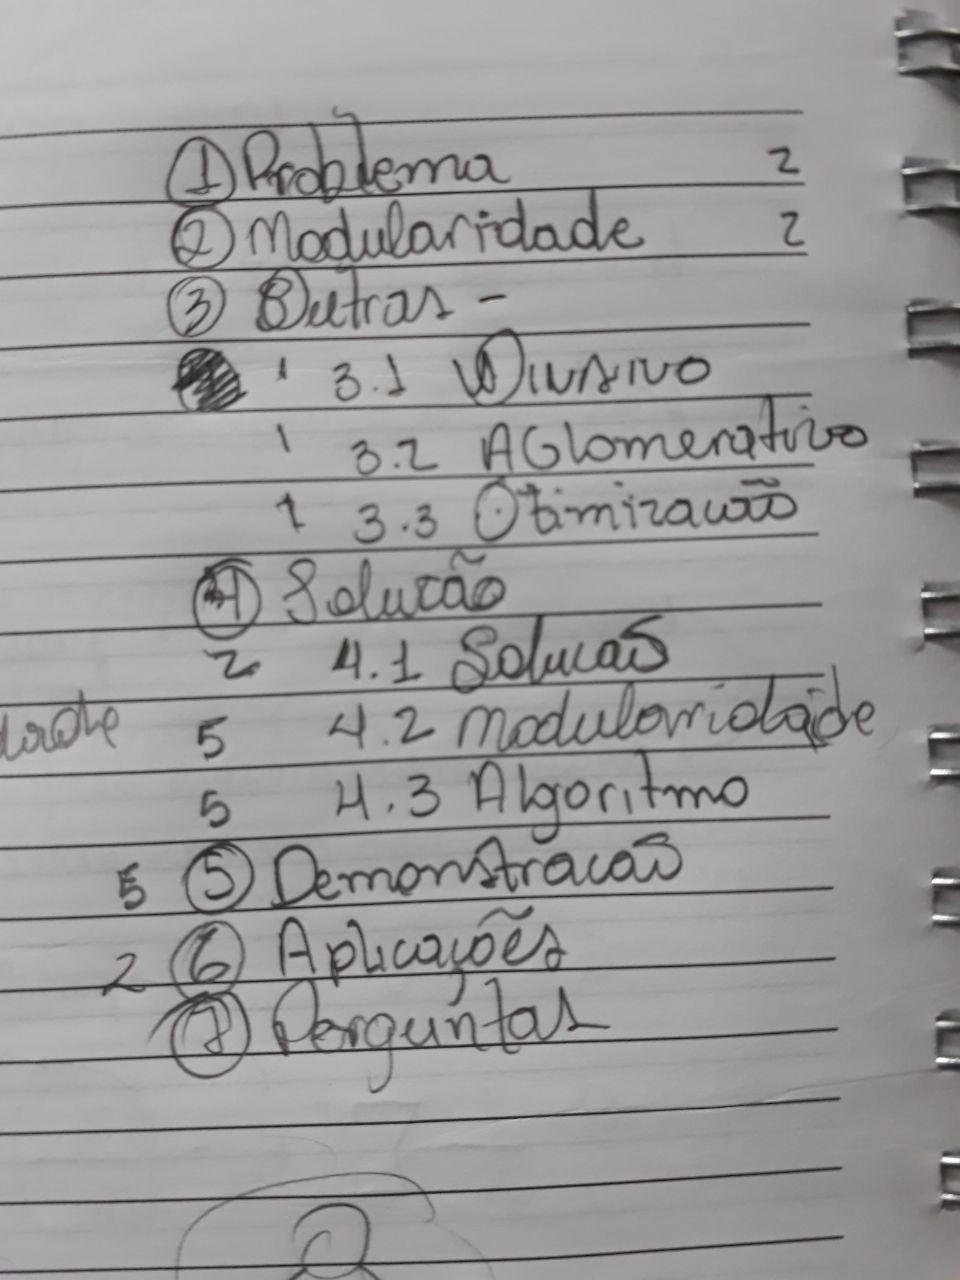 ① Problema 2
② Modularidade 2
③ Outras -
1 3.1 Divisivo
1 3.2 AGlomerativo
1 3.3 Otimização
④ Solução
2 4.1 Solucão
5 4.2 Modularidade
5 4.3 Algoritmo
5 ⑤ Demonstracão
2 ⑥ Aplicações
⑦ Perguntas